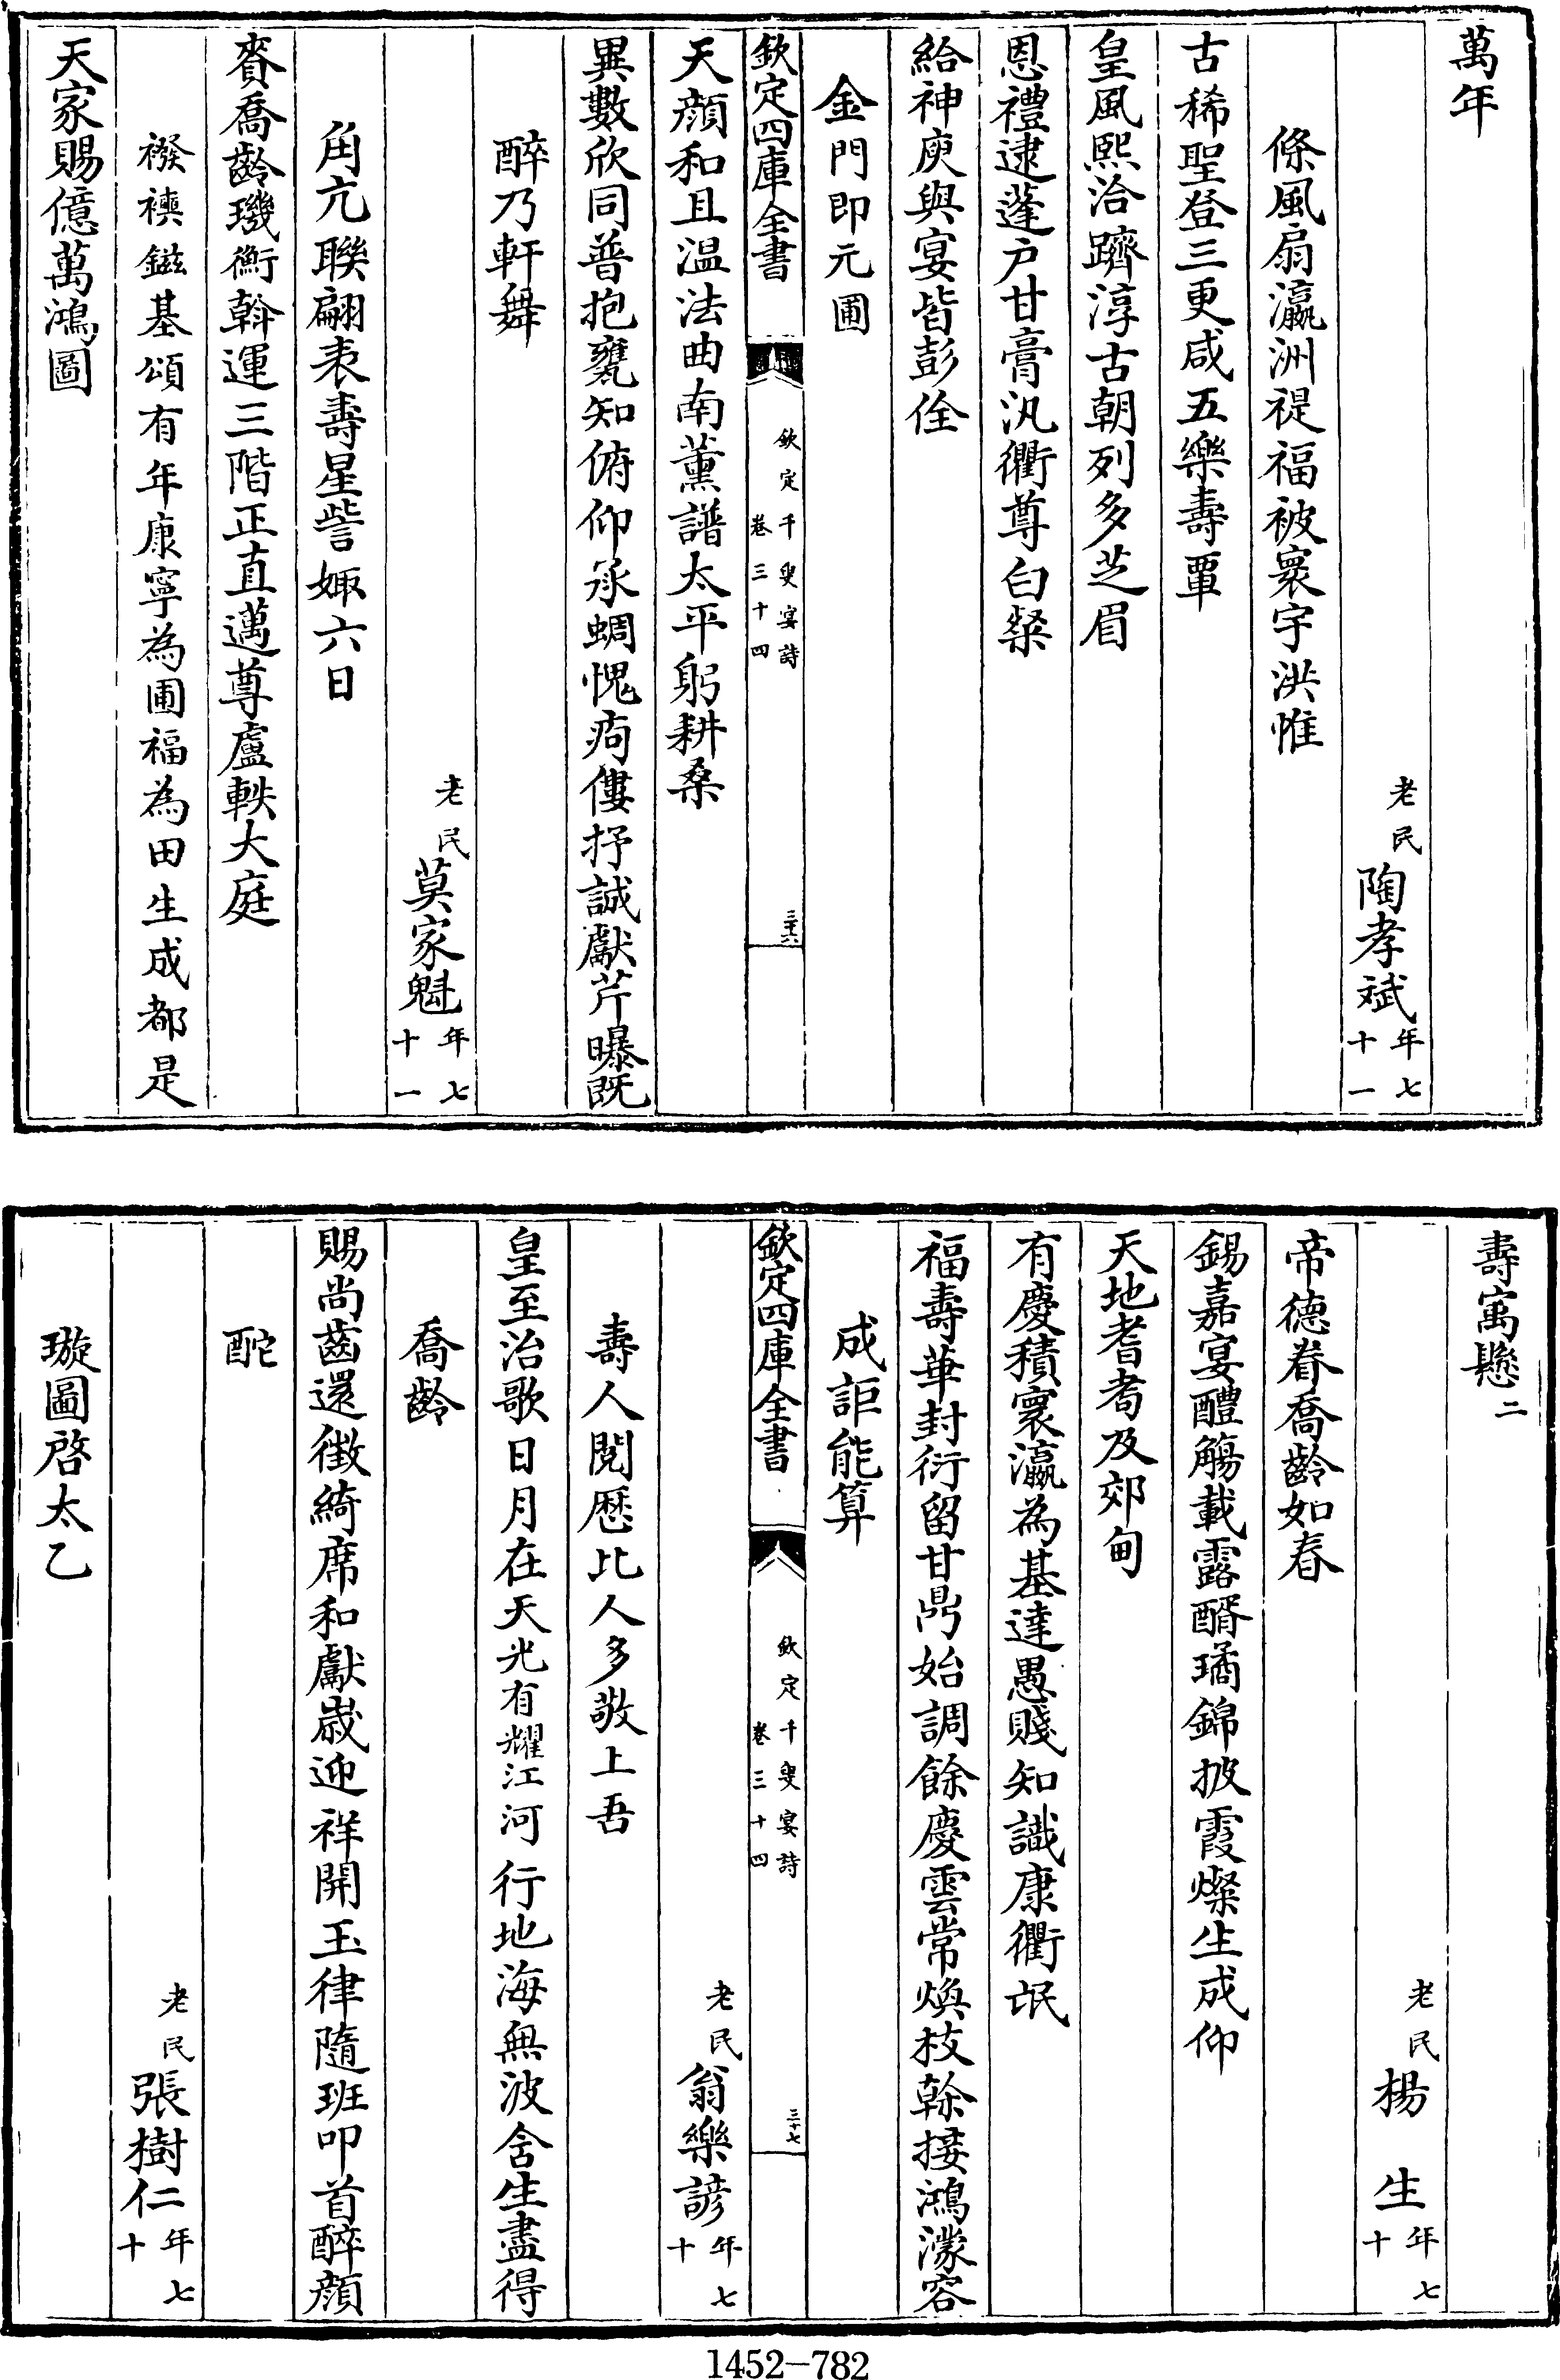 萬年
老民陶孝斌年七十一
條風扇瀛洲禔福被寰宇洪惟
古稀聖登三更咸五樂壽覃
皇風熙洽躋淳古朝列多芝眉
恩禮逮蓬户甘膏汎衢尊白粲
給神庾與宴皆彭佺
金門即元圃
欽定四庫全書
欽定千叟宴詩
卷三十四
三十六
天顔和且温法曲南薰譜太平躬耕桑
異數欣同普抱甕知俯仰承蜩愧痀僂抒誠獻芹曝既
醉乃軒舞
老民莫家魁年七十一
角亢聯翩表壽星訾娵六日
賚喬齡璣衡斡運三階正直邁尊盧軼大庭
襏襫鎡基頌有年康寧為圃福為田生成都是
天家賜億萬鴻圖
壽寓懸二
老民楊生年七十
帝德眷喬齡如春
錫嘉宴醴觴載露醑璚錦披霞燦生成仰
天地耆耇及郊甸
有慶積寰瀛為基達愚賤知識康衢氓
福壽華封衍留甘鼎始調餘慶雲常煥枝榦接鴻濛容
成詎能算
欽定四庫全書
欽定千叟宴詩
卷三十四
三十七
老民翁樂諺年七十
壽人閱歷比人多敬上吾
皇至治歌日月在天光有耀江河行地海無波含生盡得
喬齡
賜尚齒還徵綺席和獻歲迎祥開玉律隨班叩首醉顔
酡
老民張樹仁年七十
璇圖啓太乙
1452-782